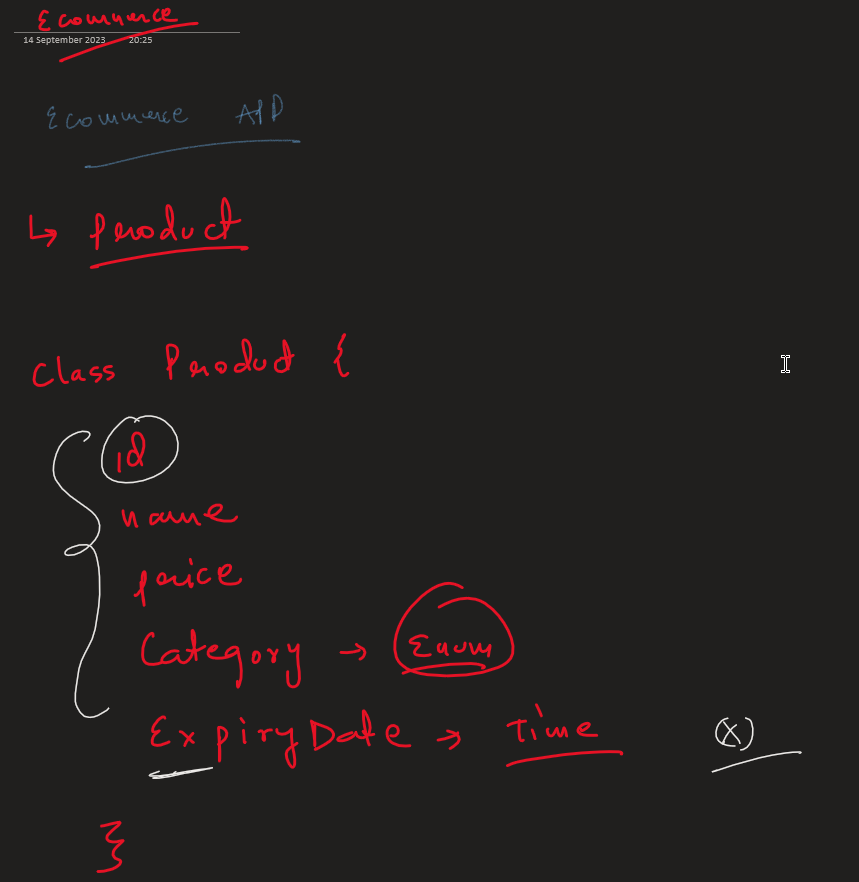 Ecommerce
14 September 2023 20:25
Ecommerce APP
↳ Product
Class Product {
id
name
price
Category → Enum
ExpiryDate → Time (X)
}